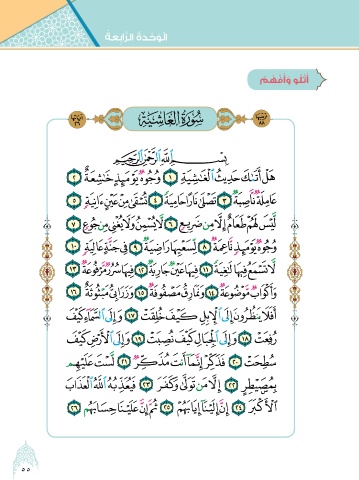 الوحدة الرابعة
أتلو وأفهم
سُورَةُ الْغَاشِيَةِ
بِسْمِ اللَّهِ الرَّحْمَٰنِ الرَّحِيمِ
هَلْ أَتَىٰكَ حَدِيثُ الْغَٰشِيَةِ ١ وُجُوهٌ يَوْمَئِذٍ خَٰشِعَةٌ ٢
عَامِلَةٌ نَّاصِبَةٌ ٣ تَصْلَىٰ نَارًا حَامِيَةً ٤ تُسْقَىٰ مِنْ عَيْنٍ ءَانِيَةٍ ٥
لَّيْسَ لَهُمْ طَعَامٌ إِلَّا مِن ضَرِيعٍ ٦ لَّا يُسْمِنُ وَلَا يُغْنِي مِن جُوعٍ ٧
وُجُوهٌ يَوْمَئِذٍ نَّاعِمَةٌ ٨ لِّسَعْيِهَا رَاضِيَةٌ ٩ فِي جَنَّةٍ عَالِيَةٍ ١٠
لَّا تَسْمَعُ فِيهَا لَٰغِيَةً ١١ فِيهَا عَيْنٌ جَارِيَةٌ ١٢ فِيهَا سُرُرٌ مَّرْفُوعَةٌ ١٣
وَأَكْوَابٌ مَّوْضُوعَةٌ ١٤ وَنَمَارِقُ مَصْفُوفَةٌ ١٥ وَزَرَابِيُّ مَبْثُوثَةٌ ١٦
أَفَلَا يَنظُرُونَ إِلَى الْإِبِلِ كَيْفَ خُلِقَتْ ١٧ وَإِلَى السَّمَاءِ كَيْفَ
رُفِعَتْ ١٨ وَإِلَى الْجِبَالِ كَيْفَ نُصِبَتْ ١٩ وَإِلَى الْأَرْضِ كَيْفَ
سُطِحَتْ ٢٠ فَذَكِّرْ إِنَّمَا أَنتَ مُذَكِّرٌ ٢١ لَّسْتَ عَلَيْهِم
بِمُصَيْطِرٍ ٢٢ إِلَّا مَن تَوَلَّىٰ وَكَفَرَ ٢٣ فَيُعَذِّبُهُ اللَّهُ الْعَذَابَ
الْأَكْبَرَ ٢٤ إِنَّ إِلَيْنَا إِيَابَهُمْ ٢٥ ثُمَّ إِنَّ عَلَيْنَا حِسَابَهُم ٢٦
٥٥